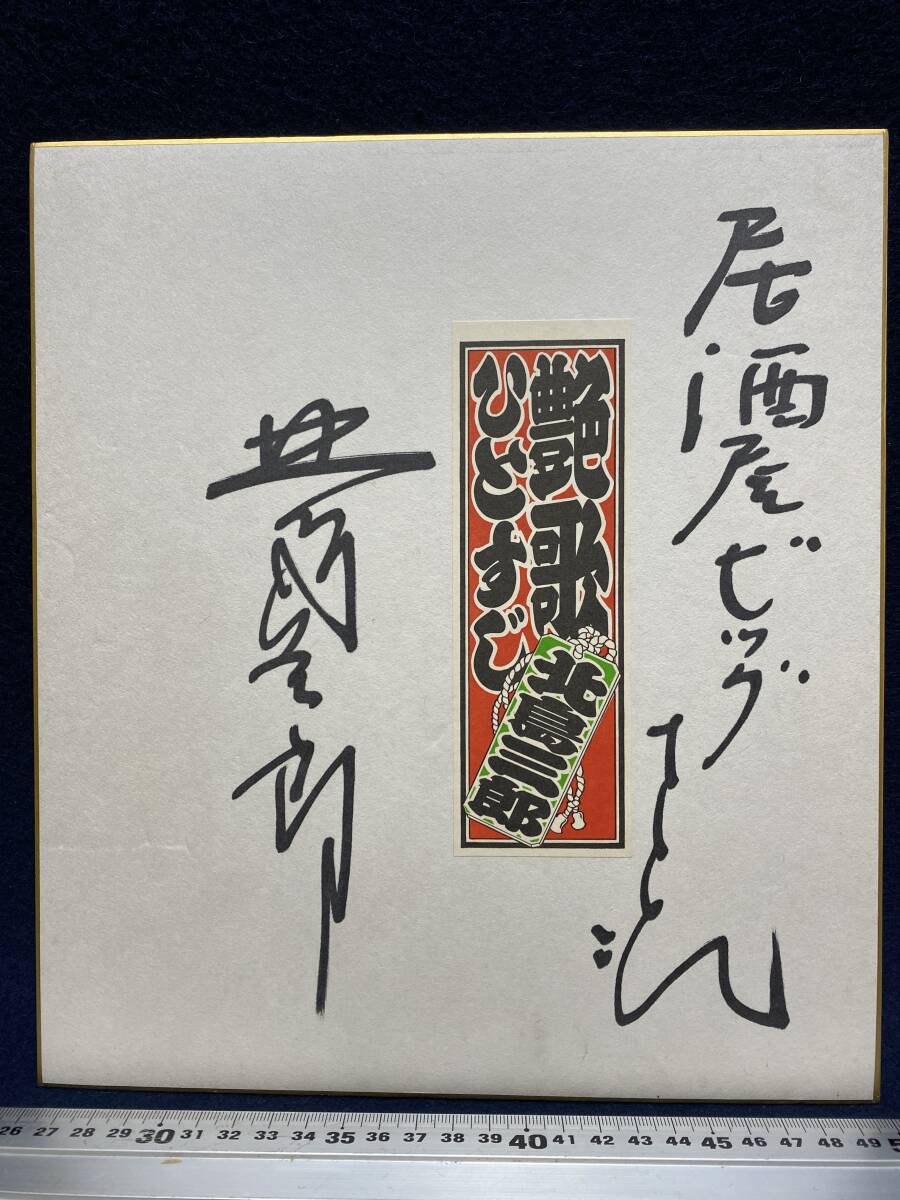 居酒屋ビッグ
さん江
艶歌
ひとすじ
北島三郎
北島三郎
26 27 28 29 30 31 32 33 34 35 36 37 38 39 40 41 42 43 44 45 46 47 48 49 5